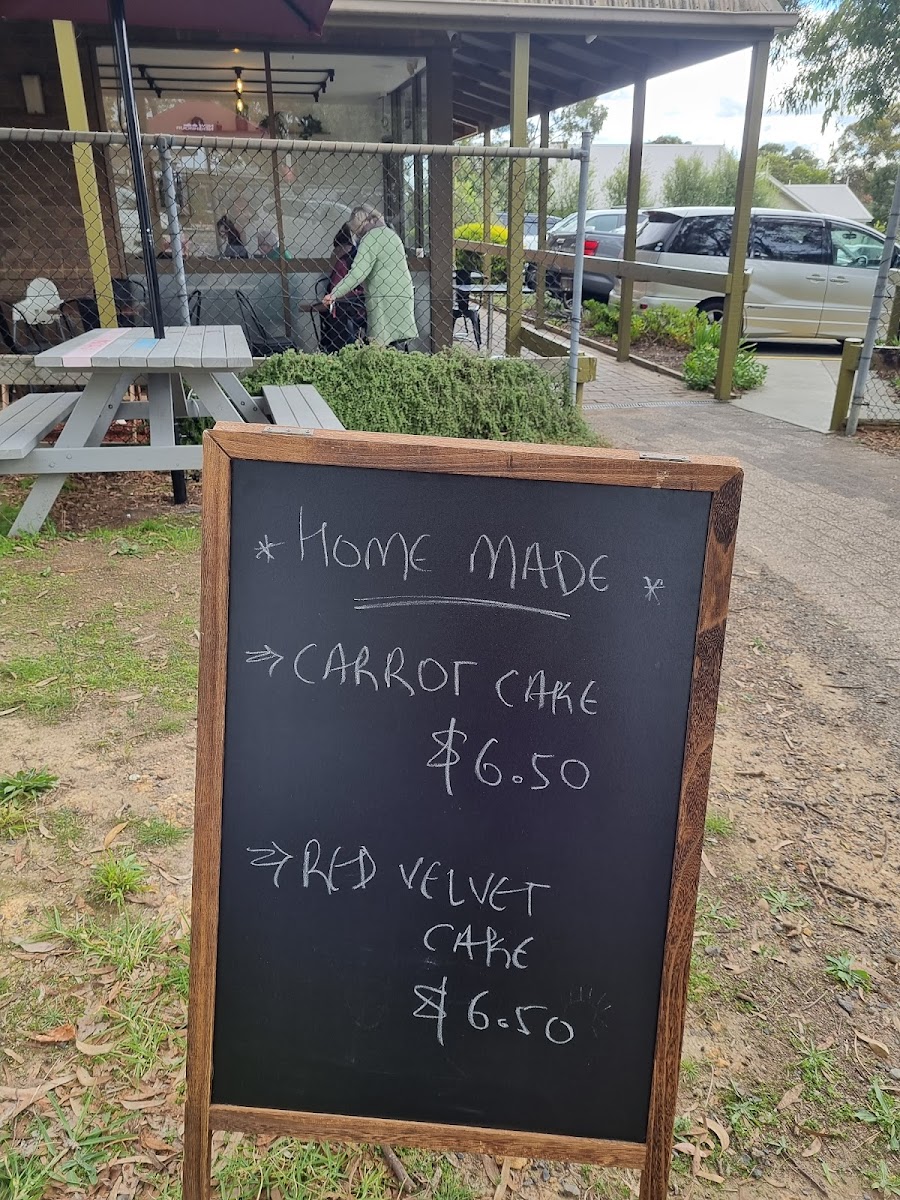 * HOME MADE *
⇒ CARROT CAKE
$6.50
⇒ RED VELVET
CAKE
$6.50